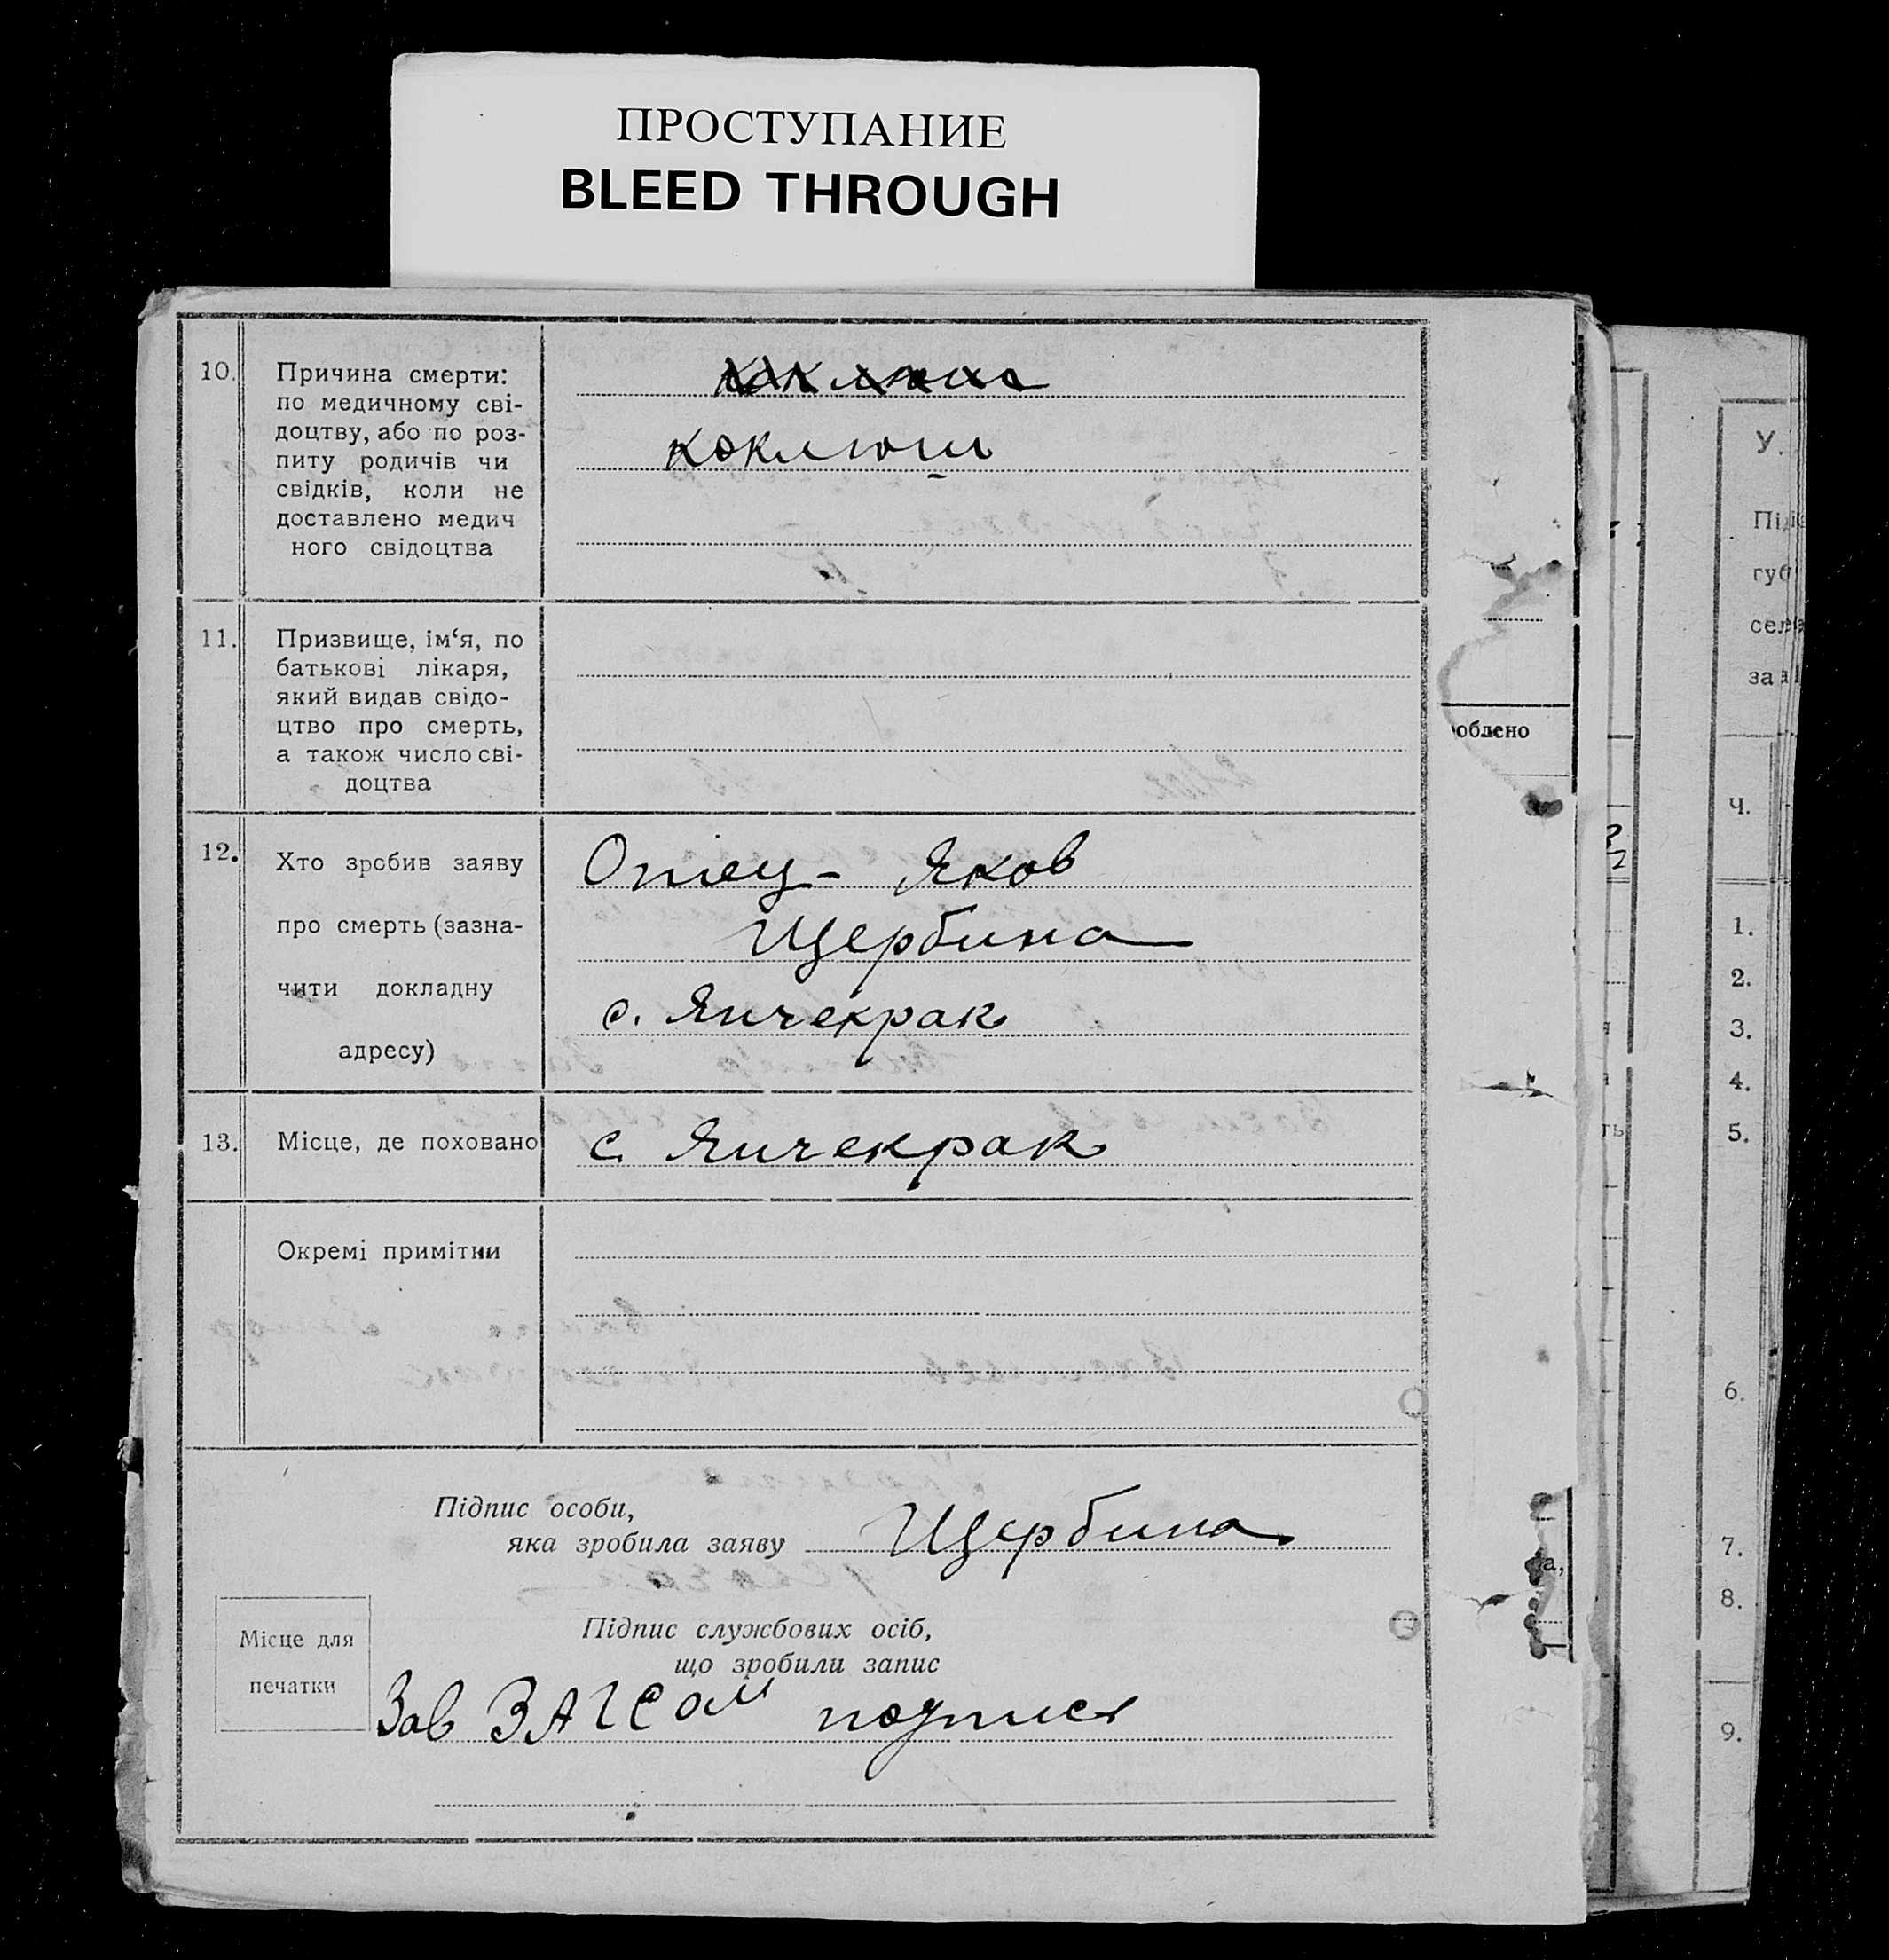 ПРОСТУПАНИЕ
BLEED THROUGH
10. Причина смерти:
по медичному сві-
доцтву, або по роз-
питу родичів чи
свідків, коли не
доставлено медич
ного свідоцтва
коклюш
11. Призвище, ім‘я, по
батькові лікаря,
який видав свідо-
цтво про смерть,
а також число сві-
доцтва
12. Хто зробив заяву
про смерть (зазна-
чити докладну
адресу)
Отец - Яков
Щербина
с. Янчекрак
13. Місце, де поховано
с. Янчекрак
Окремі примітки
Підпис особи,
яка зробила заяву Щербина
Місце для
печатки
Підпис службових осіб,
що зробили запис
Зав ЗАГСом подпись
облено
а,
ть
У.
Під
губ
сел
за
Ч.
1.
2.
3.
4.
5.
6.
7.
8.
9.